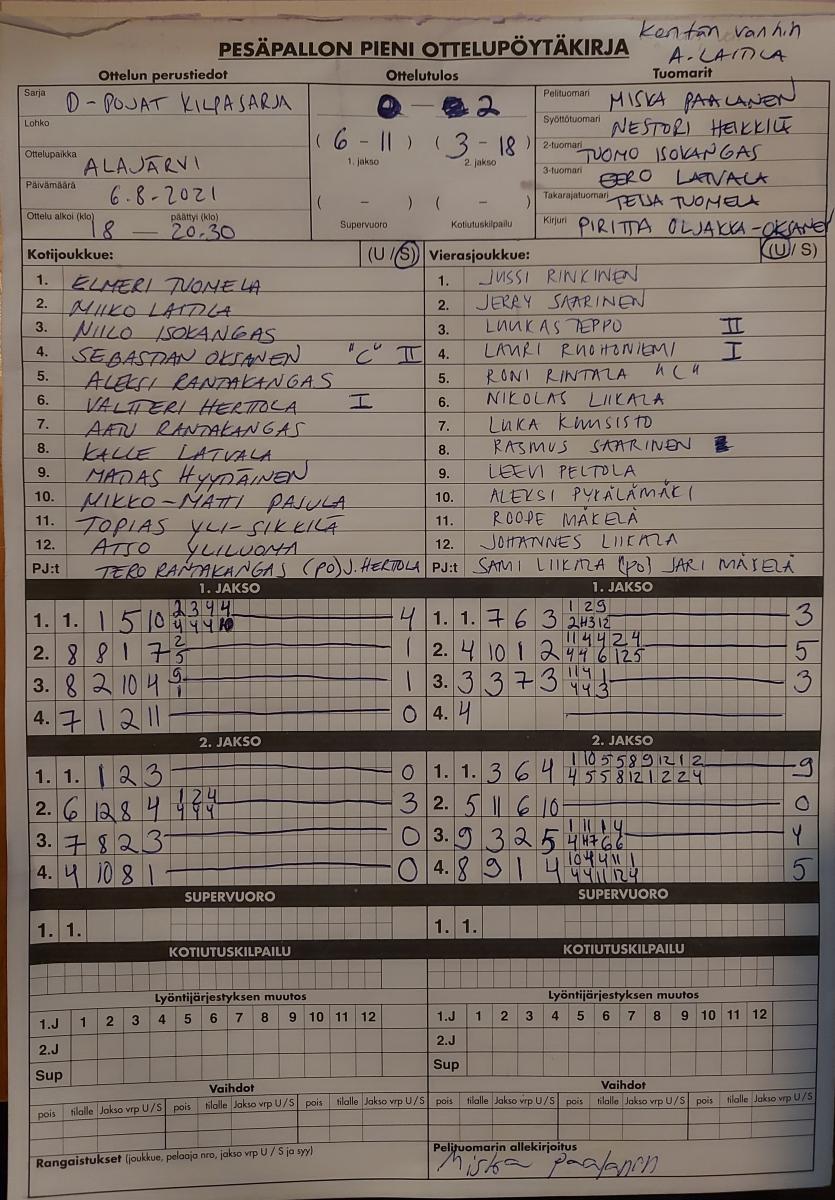 Kentän vanhin
A. LAITILA
PESÄPALLON PIENI OTTELUPÖYTÄKIRJA
Ottelun perustiedot Ottelutulos Tuomarit
Sarja D-POJAT KILPASARJA
Lohko
Ottelupaikka ALAJÄRVI
Päivämäärä 6.8-2021
Ottelu alkoi (klo) päättyi (klo)
18 — 20.30
0 - 2
( 6 - 11 ) ( 3 - 18 )
1. jakso 2. jakso
( - ) ( - )
Supervuoro Kotiutuskilpailu
Pelituomari MISKA PAALANEN
Syöttötuomari NESTORI HEIKKILÄ
2-tuomari TUOMO ISOKANGAS
3-tuomari EERO LATVALA
Takarajatuomari TEIJA TUOMELA
Kirjuri PIRITTA OLJAKKA-OKSANEN
Kotijoukkue: (U/S)
1. ELMERI TUOMELA
2. MIIKO LAITILA
3. NIILO ISOKANGAS
4. SEBASTIAN OKSANEN "C" II
5. ALEKSI RANTAKANGAS
6. VALTTERI HERTTOLA I
7. AATU RANTAKANGAS
8. KALLE LATVALA
9. HYYPÄINEN
10. MIKKO-MATTI PAJULA
11. TOPIAS YLI-SIKKILÄ
12. ATSO YLILUOMA
PJ:t TERO RANTAKANGAS (PO) J. HERTOLA
Vierasjoukkue: (U/S)
1. JUSSI RINKINEN
2. JERRY SAARINEN
3. LUUKAS TEPPO II
4. LAURI RUOHONIEMI I
5. RONI RINTALA "C"
6. NIKOLAS LIIKALA
7. LUKA KUUSISTO
8. RASMUS SAARINEN
9. LEEVI PELTOLA
10. ALEKSI PYKÄLÄMÄKI
11. ROOPE MÄKELÄ
12. JOHANNES LIIKALA
PJ:t SAMI LIIKALA (PO) JARI MÄKELÄ
1. JAKSO
1. 1. 1 5 10 2 3 4 4 4
2. 8 8 1 7 2 5 1
3. 8 2 10 4 9 1 1
4. 7 1 2 11 0
1. JAKSO
1. 1. 7 6 3 1 2 9 3
2. 4 10 1 2 11 4 4 2 4 5
3. 3 3 7 3 11 4 1 4 4 3 3
4. 4
2. JAKSO
1. 1. 1 2 3 0
2. 6 12 8 4 1 2 4 4 4 4 3
3. 7 8 2 3 0
4. 4 10 8 1 0
2. JAKSO
1. 1. 3 6 4 1 10 5 5 8 9 12 1 2 4 5 5 8 12 1 2 2 4 9
2. 5 11 6 10 0
3. 9 3 2 5 1 11 1 4 4
4. 8 9 1 4 10 4 4 11 1 4 4 11 12 4 5
SUPERVUORO
1. 1.
SUPERVUORO
1. 1.
KOTIUTUSKILPAILU
KOTIUTUSKILPAILU
Lyöntijärjestyksen muutos
1.J 1 2 3 4 5 6 7 8 9 10 11 12
2.J
Sup
Lyöntijärjestyksen muutos
1.J 1 2 3 4 5 6 7 8 9 10 11 12
2.J
Sup
Vaihdot
pois tilalle Jakso vrp U/S pois tilalle Jakso vrp U/S pois tilalle Jakso vrp U/S
Vaihdot
pois tilalle Jakso vrp U/S pois tilalle Jakso vrp U/S pois tilalle Jakso vrp U/S
Rangaistukset (joukkue, pelaaja nro, jakso vrp U / S ja syy)
Pelituomarin allekirjoitus
Miska Paalanen